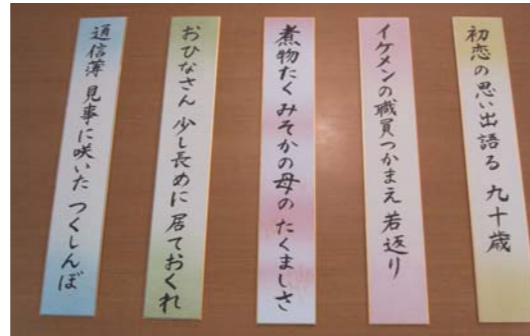 初恋の思い出語る 九十歳
イケメンの職員つかまえ 若返り
煮物たく みそかの母の たくましさ
おひなさん 少し長めに 居ておくれ
通信薄 見事に咲いた つくしんぼ